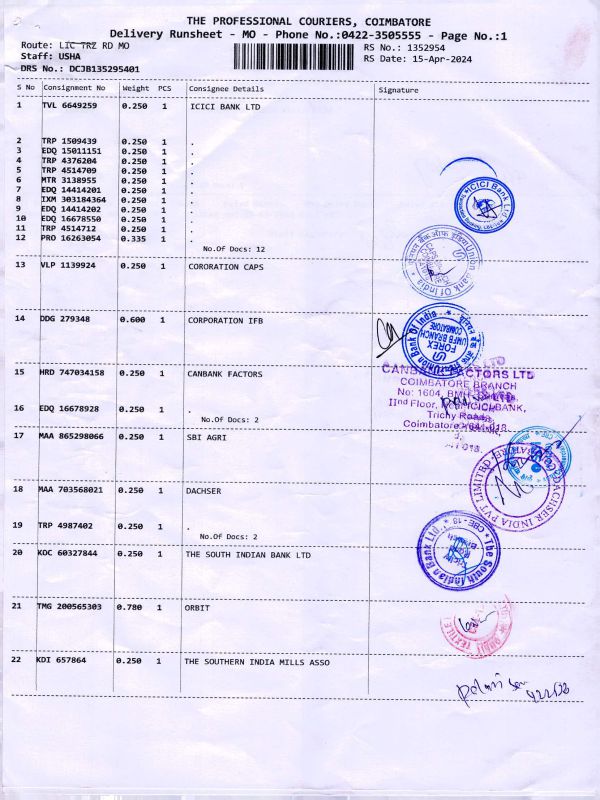 THE PROFESSIONAL COURIERS, COIMBATORE
Delivery Runsheet - MO - Phone No.:0422-3505555 - Page No.:1
Route: LIC TRZ RD MO
RS No.: 1352954
Staff: USHA
RS Date: 15-Apr-2024
DRS No.: DCJB135295401
S No Consignment No Weight PCS Consignee Details Signature
1 TVL 6649259 0.250 1 ICICI BANK LTD
2 TRP 1509439 0.250 1 .
3 EDQ 15011151 0.250 1 .
4 TRP 4376204 0.250 1 .
5 TRP 4514709 0.250 1 .
6 MTR 3138955 0.250 1 .
7 EDQ 14414201 0.250 1 .
8 IXM 303184364 0.250 1 .
9 EDQ 14414202 0.250 1 .
10 EDQ 16678550 0.250 1 .
11 TRP 4514712 0.250 1 .
12 PRO 16263054 0.335 1 .
No.Of Docs: 12
ICICI Bank Ltd
13 VLP 1139924 0.250 1 CORORATION CAPS
Union Bank Of India
14 DDG 279348 0.600 1 CORPORATION IFB
Union Bank Of India
FOREX
UMFB BRANCH
COIMBATORE
15 HRD 747034158 0.250 1 CANBANK FACTORS
CANBANK FACTORS LTD
COIMBATORE BRANCH
No: 1604,
IInd Floor, ICICI BANK,
Trichy Road,
Coimbatore
16 EDQ 16678928 0.250 1
No.Of Docs: 2
17 MAA 865298066 0.250 1 SBI AGRI
18 MAA 703568021 0.250 1 DACHSER
DACHSER INDIA PVT LIMITED
19 TRP 4987402 0.250 1 .
No.Of Docs: 2
20 KOC 60327844 0.250 1 THE SOUTH INDIAN BANK LTD
The South Indian Bank Ltd., CBE - 18
21 TMG 200565303 0.780 1 ORBIT
ORBIT TEXTILE
22 KDI 657864 0.250 1 THE SOUTHERN INDIA MILLS ASSO